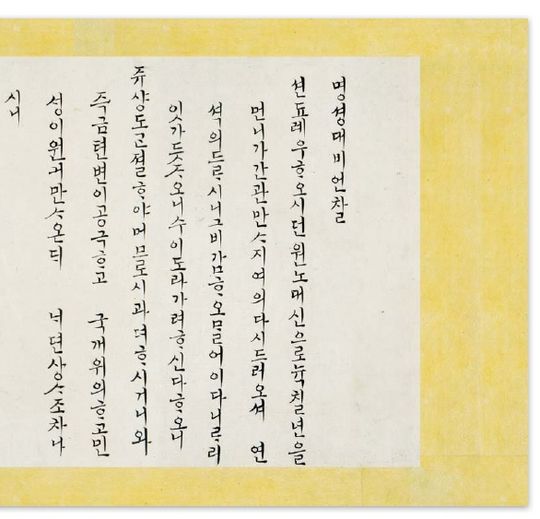 명셩대비언찰
션됴례우ᄒᆞ오시던원노대신으로뉵칠년을
먼니가간관만ᄉᆞ지여의다시드러오셔 연
셕의드ᄅᆞ시니그비감ᄒᆞ오믈어이다니ᄅᆞ리
잇가듯ᄌᆞ오니수이도라가려ᄒᆞ신다ᄒᆞ오니
쥬샹도ᄀᆞᆫ졀ᄒᆞ야머믈로시과뎌ᄒᆞ시거니와
즉금텬변이공극ᄒᆞ고 국개위의ᄒᆞ고민
셩이원거만ᄉᆞ온ᄃᆡ ᄂᆡ뎐상ᄉᆞ조차나
시니